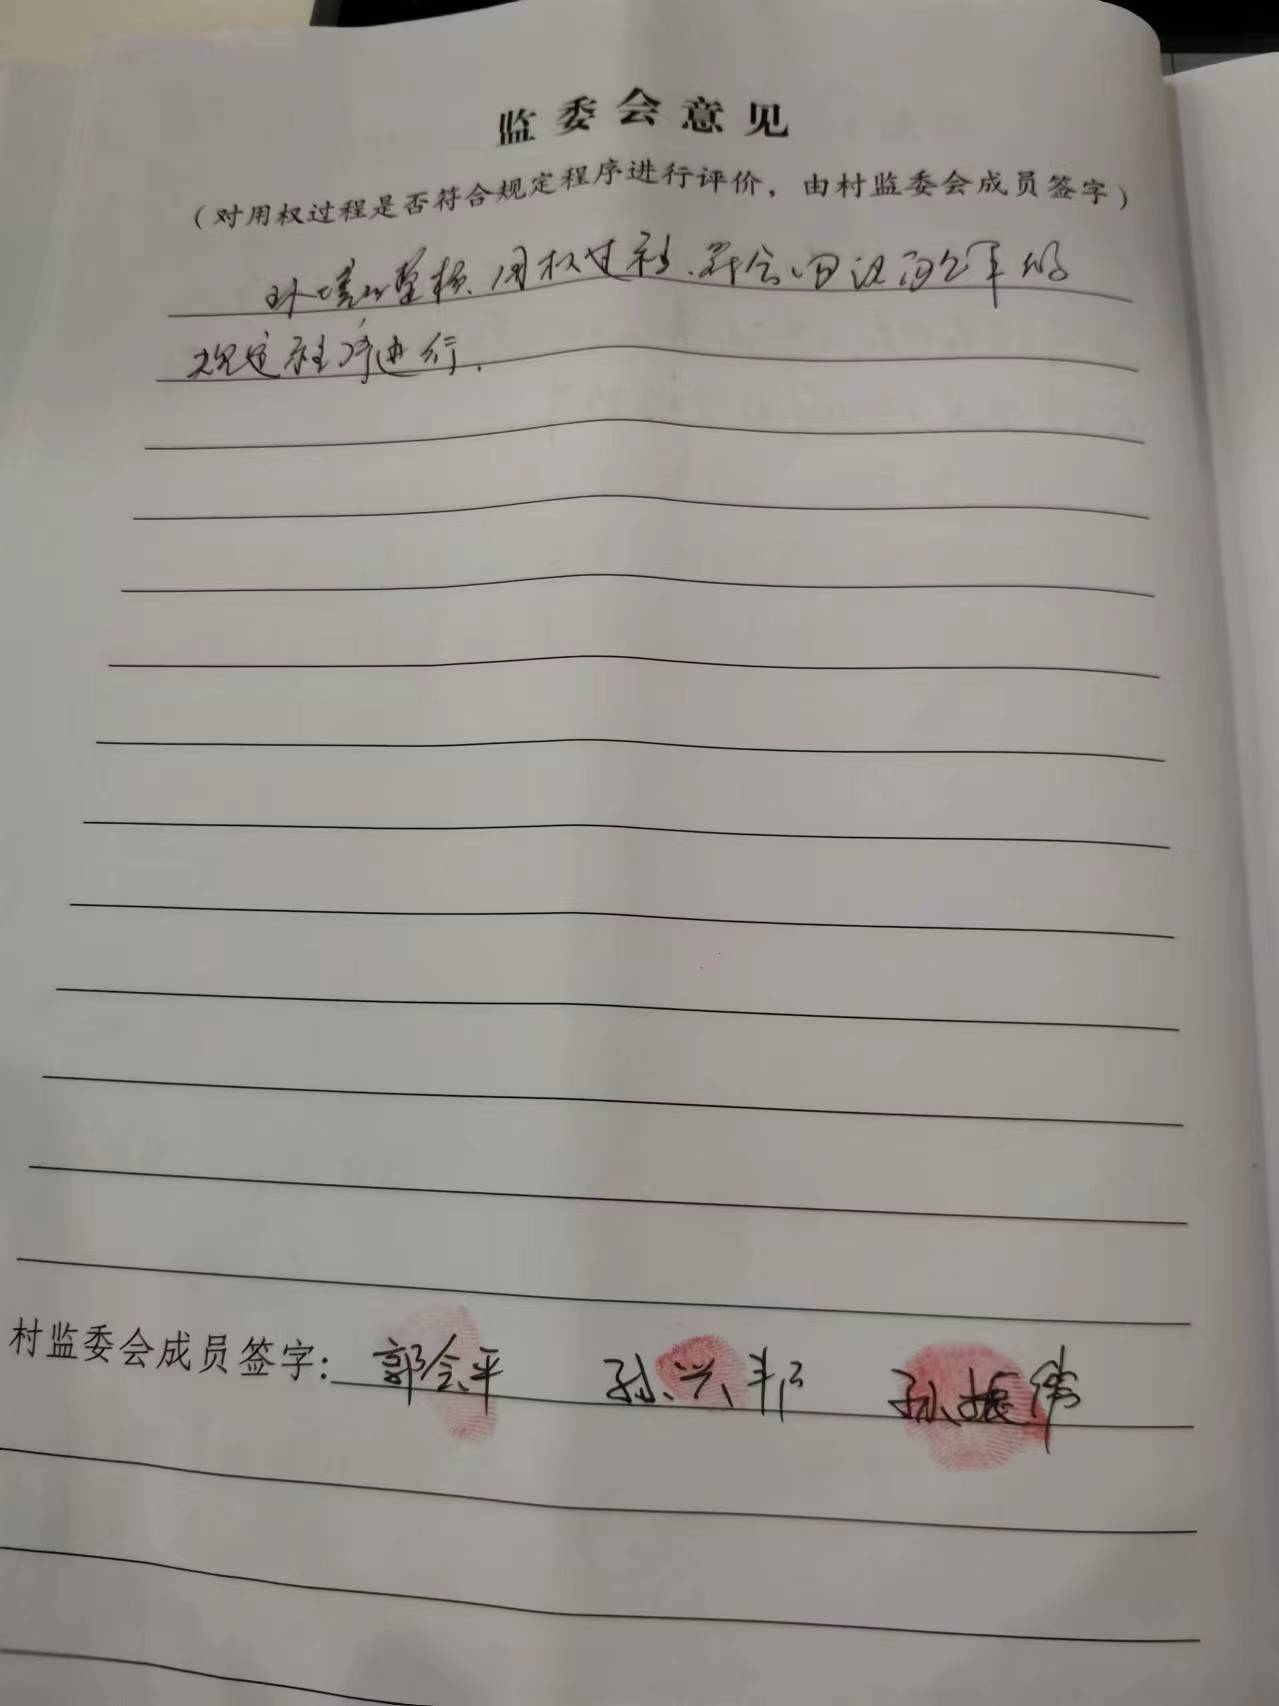 监委会意见
（对用权过程是否符合规定程序进行评价，由村监委会成员签字）
环境整核、用权过程、符合四议两公开的
规定程序进行.
村监委会成员签字：郭会平 孙兴邦 孙振伟